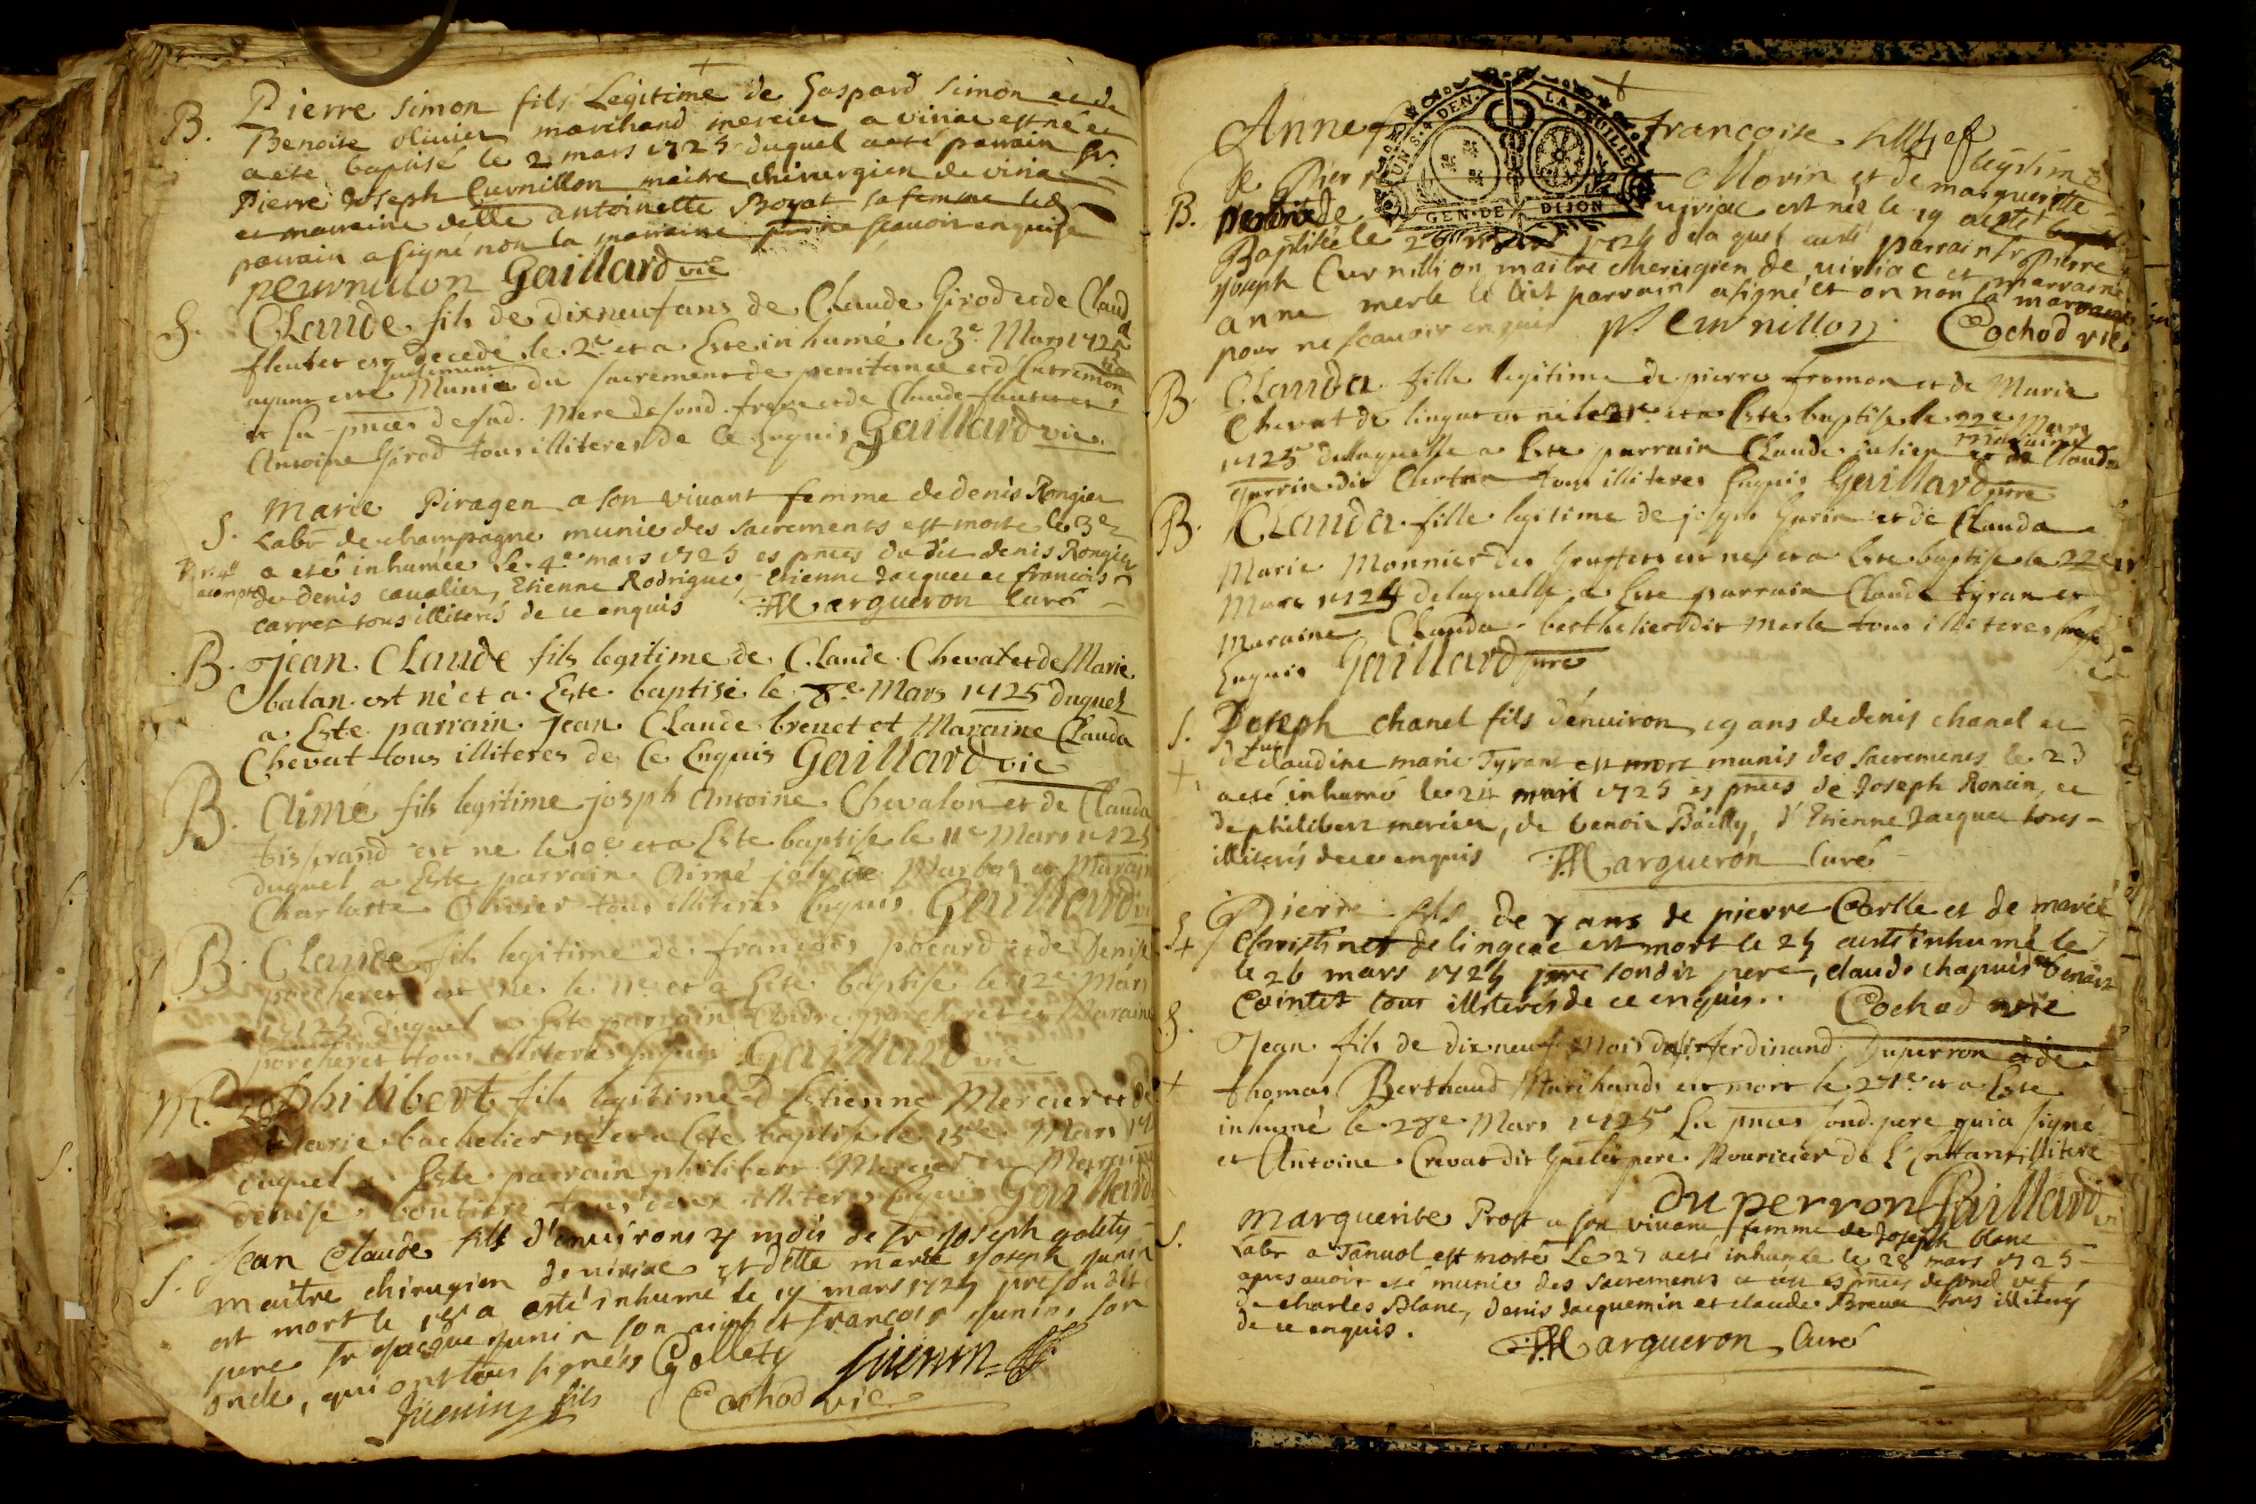 B. Pierre Simon fils Legitime de Gaspard Simon et de
Benoite olivier marchand mercier a viriac est né et
a eté baptisé le 2 mars 1725 duquel a eté parrain Sr.
Pierre Joseph Curnillon maitre chirurgien de viriac
et marraine delle antoinette Boyat sa femme led.
parrain a signé non la marraine pour ne scavoir enquise
peurnillon Gaillard vic
S. CLaude fils de dixneuf ans de CLaude Girod et de Claud
fleutet est decedé le 2e et a Este inhumé le 3e Mars 1725
ayant esté Munie du sacrement de penitance et d'Extremon
et En pnces defud. Mere defond. frere et de Claude fleutet et
Antoine Girod tous illiteres de Ce Enquis Gaillard vic.
S. Marie Piragen a son vivant femme de denis Rongier
Labr de champagne munie des sacrements est morte le 3e
a eté inhumée Le 4e mars 1725 es pnces du dit denis Rongier
de denis cavalier, Etienne Rodrigue, Etienne Jacquet et francois
carret tous illiterés de ce enquis Margueron Curé
B. Jean CLaude fils legitime de CLaude Chevat et de Marie
balan est né et a Este baptisé le 8e Mars 1725 duquel
a Este parrain Jean CLaude brenet et Maraine Clauda
Chevat tous illiteres de Ce Enquis Gaillard vic
B. Aimé fils legitime josph Antoine Chevalon et de Clauda
est ne le 10e et a Este baptise le 11e Mars 1725
duquel a Este parrain Aimé joly de Marboz et Marain
Charlotte Olivier tous illiteres Enquis Gaillard vi
B. CLaude fils legitime de francois pocard et de Denise
porcheret est ne le 11e et a Este baptise le 12e Mars
1725 duquel a Este parrain Andre porcheret et Maraine
porcheret tous illiteres Enquis Gaillard vic
Philibert fils legitime d'Estienne Mercier et de
Marie bachelier né et a Este baptise le 15e Mars 172
duquel a Este parrain philibert Mercier et Maraine
denise boutiere tous deux illiteres Enquis Gaillard
S. Jean Claude fils d'environs 7 mois de Sr Joseph golety
maitre chirugien de viriac et delle marie Joseph Junin
est mort le 18 a esté inhumé le 19 mars 1725 pre son dit
pere Sr Jacque Junin son aieul et francois Junin son
oncle, qui ont tous signés Gollety Juenin
Juenin fils Cochod vic.
Anne françoise fille legitime
de Pierre Morin et de marguerite
B. de viriac est née le 19 a esté
Baptisée le 20 mars 1725 de la quel a esté parrain Sr pierre
Joseph Curnillion maitre cherugien de viriac et marraine
anne merle le dit parrain a signé et on non la marraine
pour ne scavoir enquis P. Curnillon Cochod vic
B. CLauda fille legitime de pierre fromon et de Marie
Chevat de lingeat et né le 21e et a Este baptise le 22e Mars
1725 de laquelle a Este parrain CLaude julien et maraine Claudа
Guerrin dit tous illiteres Enquis Gaillard pre
B. CLauda fille legitime de joseph Guerin et de Clauda
Marie Monnier des est neé et a Este baptise le 22e
Mars 1725 de laquelle a Este parrain Claude tyran et
Maraine Clauda berthelier dit Merle tous illiteres
Enquis Gaillard pre
S. Joseph chanel fils d'environ 19 ans de denis chanel et
de fut Claudine marie Tyrant est mort munis des sacrements le 23
a eté inhumé le 24 mars 1725 es pnces de Joseph Roncin, et
de philibert mercier, de benoit Bailly, d'Etienne Jacquet tous
illiterés de ce enquis Margueron Curé
S. Pierre fils de 7 ans de pierre Carlle et de marie
Christinet de lingeat est mort le 25 a esté inhumé le
le 26 mars 1725 pre son dit pere, claude chapuis benoit
Cointet tous illiterés de ce enquis. Cochod vic
S. Jean fils de dixneuf Mois de Sr ferdinand Duperron et de
thomas Berthaud Marchands est mort le 27e et a Este
inhumé le 28e Mars 1725 En pnces sond. pere qui a signé
et Antoine Crevat dit pere Nouricier de L'Enfant illitere
Duperron Gaillard vi
S. marguerite Prost a son vivant femme de Joseph blanc
Labr a Tanuol est morte Le 27 a eté inhumée le 28 mars 1725
apres avoir eté munie des sacrements es pnces
de charles Blanc, denis Jacquemin et claude Brevet tous illiterés
de ce enquis. Margueron Curé
GEN. DE DIJON